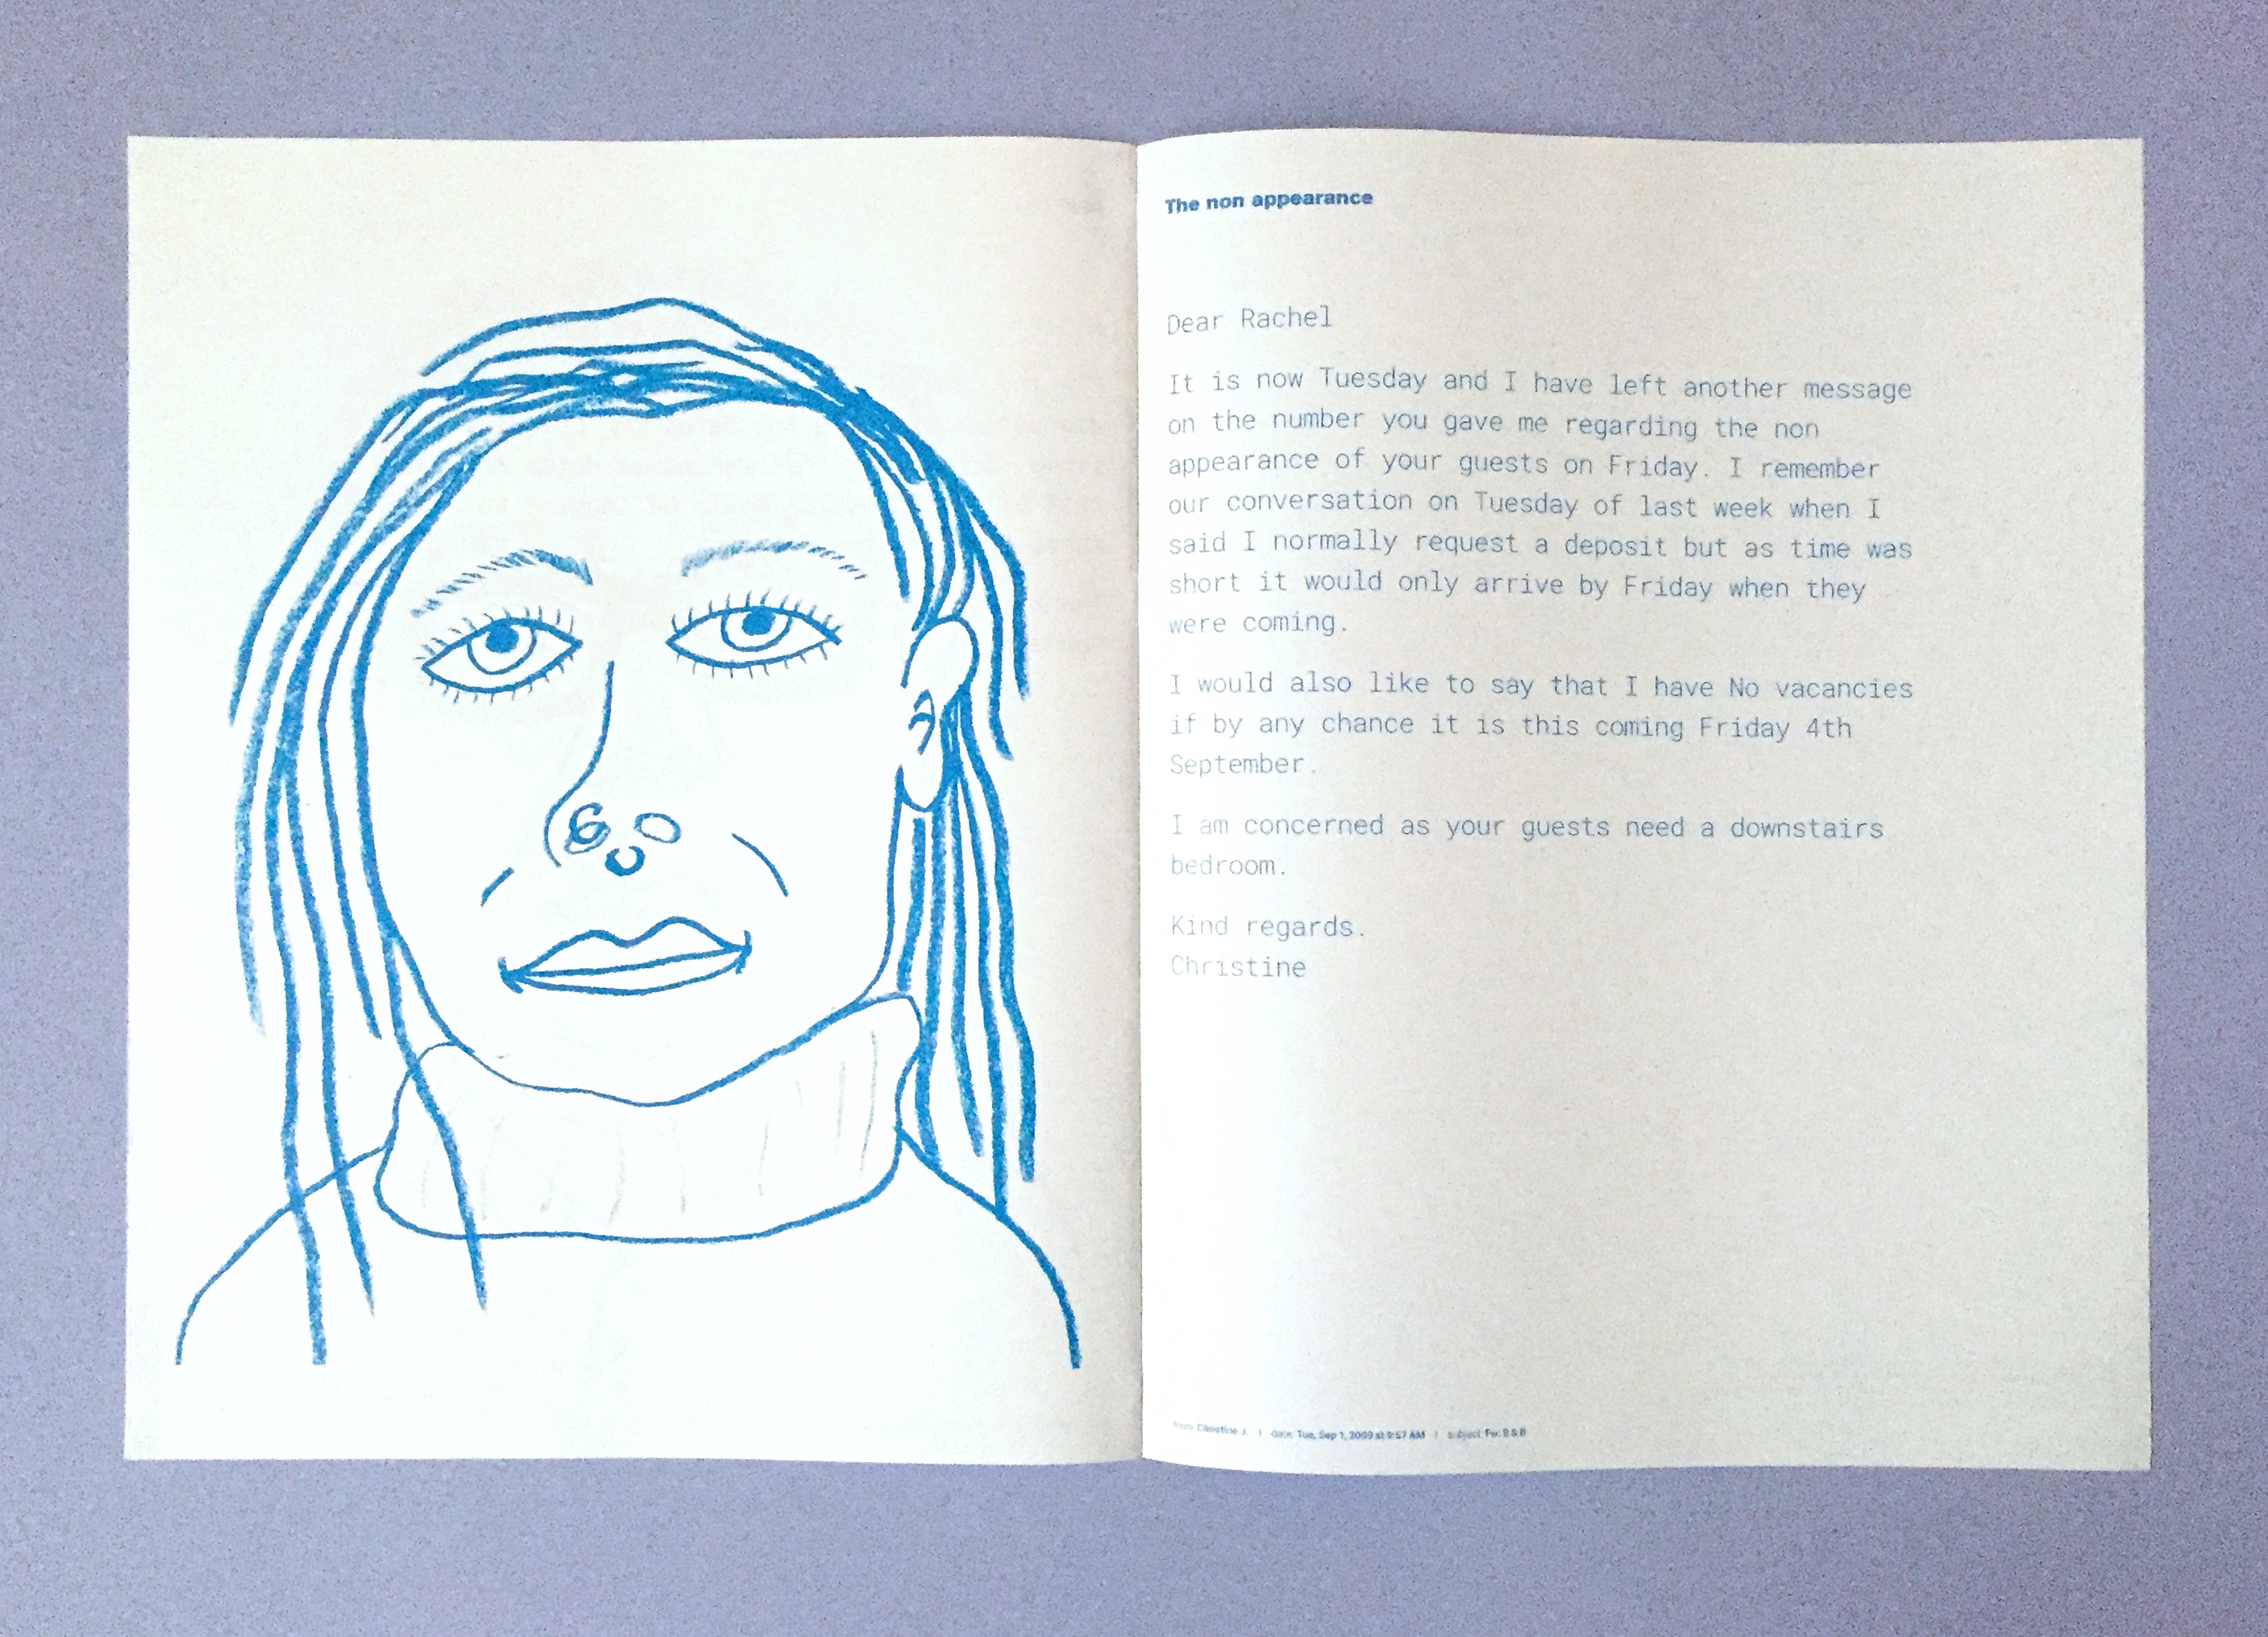 The non appearance
Dear Rachel
It is now Tuesday and I have left another message
on the number you gave me regarding the non
appearance of your guests on Friday. I remember
our conversation on Tuesday of last week when I
said I normally request a deposit but as time was
short it would only arrive by Friday when they
were coming.
I would also like to say that I have No vacancies
if by any chance it is this coming Friday 4th
September.
I am concerned as your guests need a downstairs
bedroom.
Kind regards.
Christine
from Christine J. | date: Tue, Sep 1, 2009 at 9:57 AM | subject: Fw: B & B